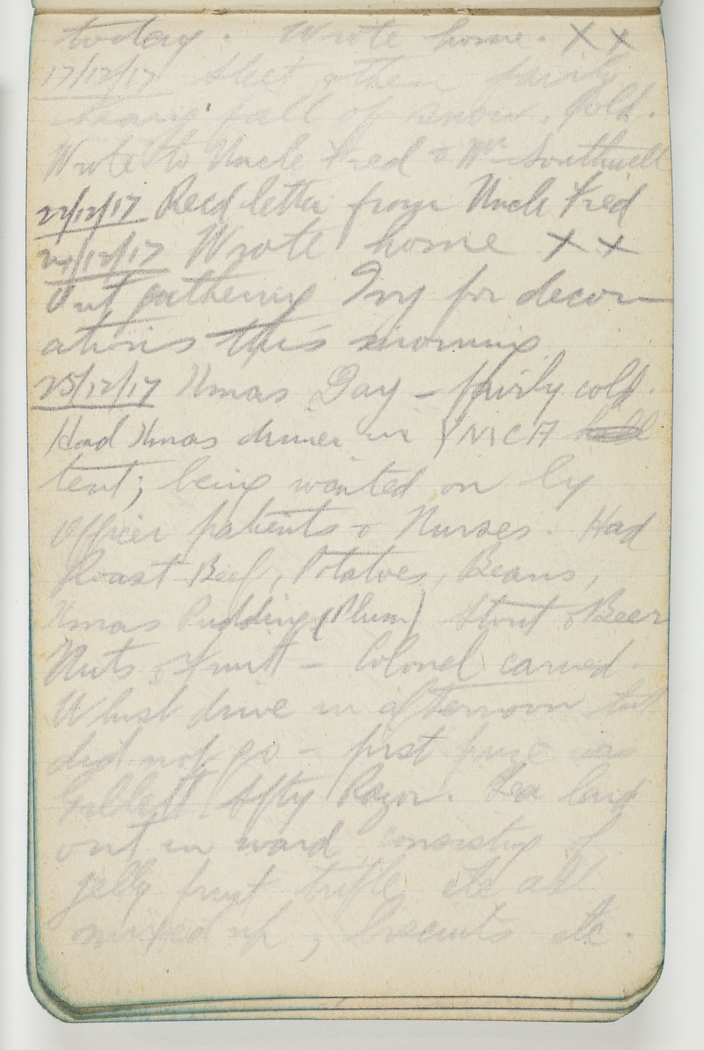 today. Wrote home. X X
17/12/17 Sleet & then fairly
heavy fall of snow. Cold.
Wrote to Uncle Fred & Mr Southwell
22/12/17 Recd letter from Uncle Fred
24/12/17 Wrote home X X
Out gathering Ivy for decor-
ations this morning
25/12/17 Xmas Day - fairly cold.
Had Xmas dinner in YMCA
tent; being waited on by
Officer patients & Nurses. Had
Roast Beef, Potatoes, Beans,
Xmas Pudding (Plum) Stout & Beer
Nuts & Fruit - Colonel carved.
Whist drive in afternoon but
did not go - first prize was
Gillett Sfty Razor. Tea laid
out in ward consisting of
jelly fruit trifle etc all
mixed up, biscuits etc.